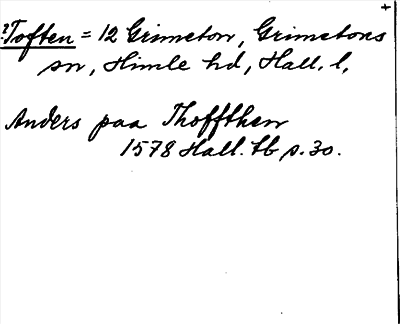 ?Toften = 12 Grimeton, Grimetons
sn, Himle hd, Hall. l.
Anders paa Thoffthen
1578 Hall. tb s. 30.